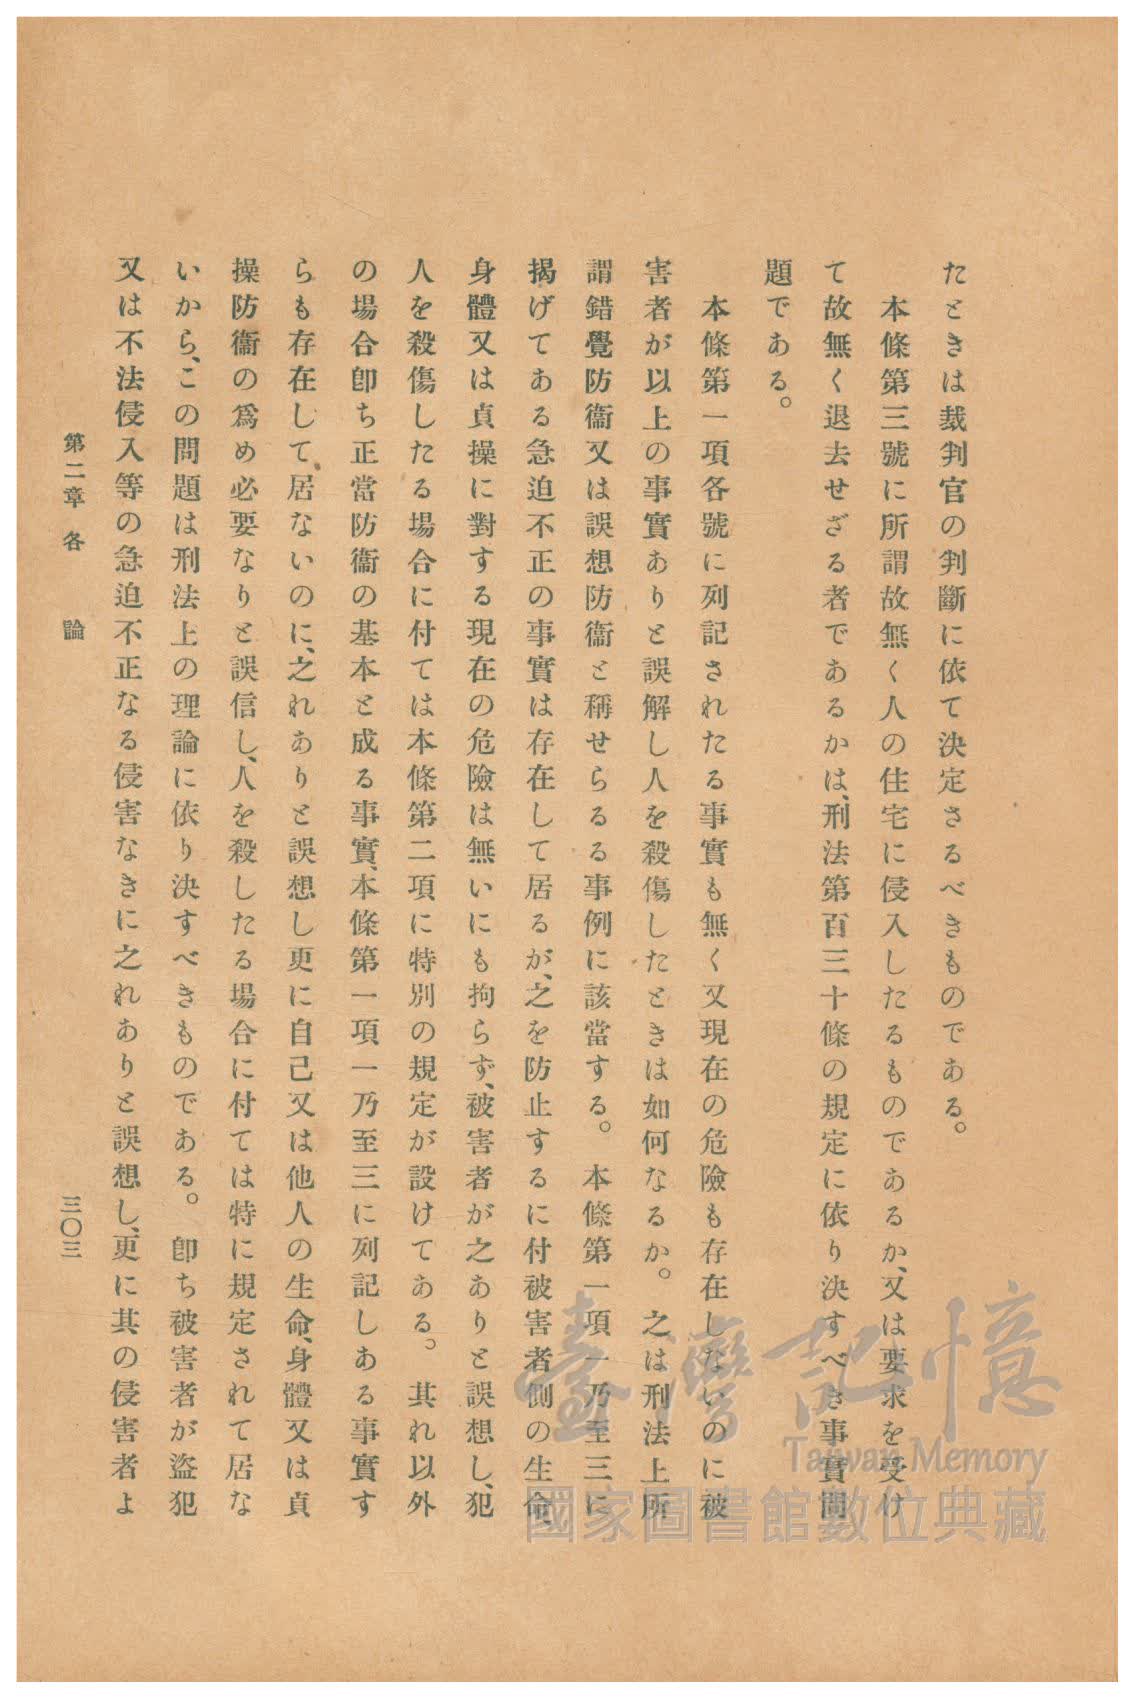 たときは裁判官の判斷に依て決定さるべきものである。
本條第三號に所謂故無く人の住宅に侵入したるものであるか、又は要求を受け
て故無く退去せざる者であるかは、刑法第百三十條の規定に依り決すべき事實問
題である。
本條第一項各號に列記されたる事實も無く又現在の危險も存在しないのに被
害者が以上の事實ありと誤解し人を殺傷したときは如何なるか。之は刑法上所
謂錯覺防衞又は誤想防衞と稱せらるる事例に該當する。本條第一項一乃至三に
揭げてある急迫不正の事實は存在して居るが、之を防止するに付被害者側の生命、
身體又は貞操に對する現在の危險は無いにも拘らず、被害者が之ありと誤想し、犯
人を殺傷したる場合に付ては本條第二項に特別の規定が設けてある。其れ以外
の場合卽ち正當防衞の基本と成る事實、本條第一項一乃至三に列記しある事實す
らも存在して居ないのに、之れありと誤想し更に自己又は他人の生命、身體又は貞
操防衞の爲め必要なりと誤信し、人を殺したる場合に付ては特に規定されて居な
いから、この問題は刑法上の理論に依り決すべきものである。卽ち被害者が盜犯
又は不法侵入等の急迫不正なる侵害なきに之れありと誤想し、更に其の侵害者よ
第二章 各論
三〇三
臺灣記憶
Taiwan Memory
國家圖書館數位典藏